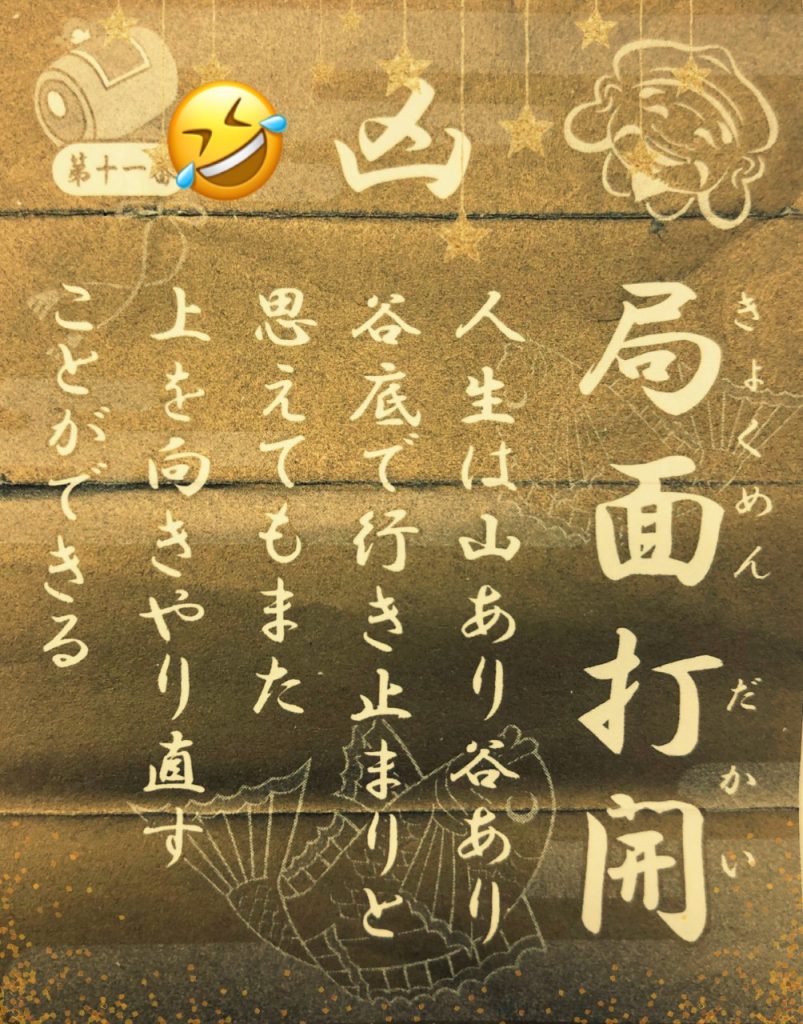 凶
第十一番
きょくめんだかい
局面打開
人生は山あり谷あり
谷底で行き止まりと
思えてもまた
上を向きやり直す
ことができる